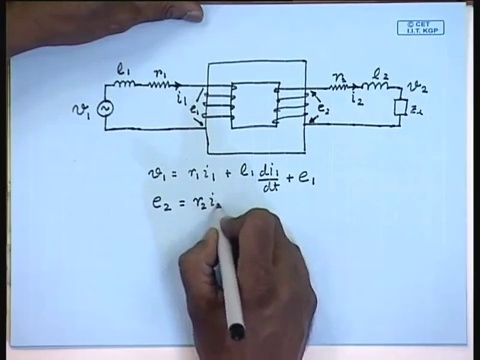 © CET
I.I.T. KGP
l₁ r₁ r₂ l₂
v₁ i₁ e₁ e₂ i₂ v₂ Z_L
v₁ = r₁ i₁ + l₁ di₁/dt + e₁
e₂ = r₂ i₂